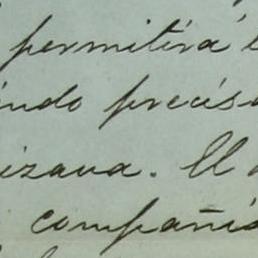 permitirá
indo precis
izava. El
compañi